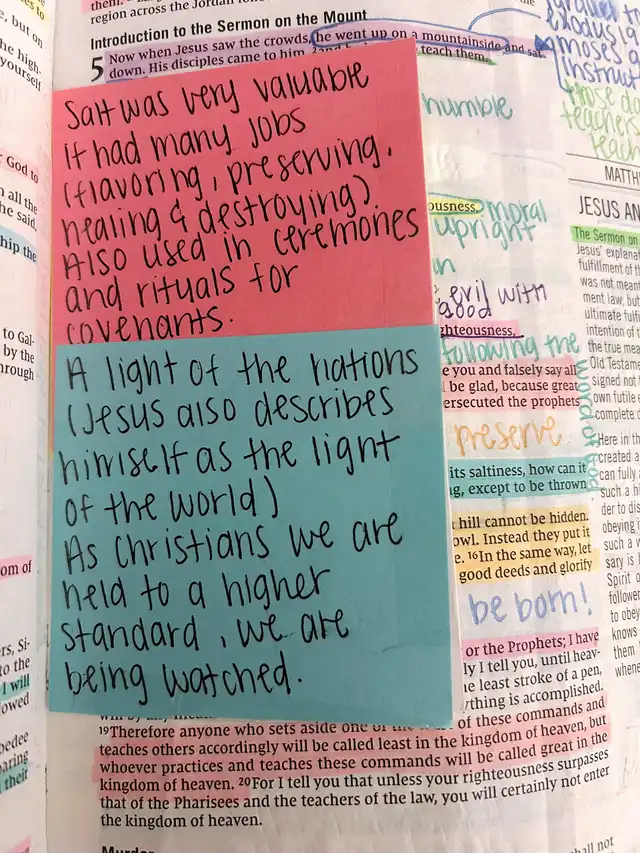 them.
region across the Jordan
Introduction to the Sermon on the Mount
5 Now when Jesus saw the crowds, he went up on a mountainside and sat
down. His disciples came to him, teach them.
Salt was very valuable
it had many jobs
(flavoring, preserving,
healing & destroying).
Also used in ceremones
and rituals for
covenants.
A light of the nations
(Jesus also describes
himself as the light
of the world)
As Christians we are
held to a higher
standard, we are
being watched.
humble
ousness, moral
upright
evil with
good
ghteousness,
following the
word of God.
e you and falsely say all
be glad, because great
ersecuted the prophets
preserve
its saltiness, how can it
g, except to be thrown
hill cannot be hidden.
owl. Instead they put it
e. 16In the same way, let
good deeds and glorify
be born!
or the Prophets; I have
ly I tell you, until heav-
he least stroke of a pen,
ything is accomplished.
19Therefore anyone who sets aside one of of these commands and
teaches others accordingly will be called least in the kingdom of heaven, but
whoever practices and teaches these commands will be called great in the
kingdom of heaven. 20For I tell you that unless your righteousness surpasses
that of the Pharisees and the teachers of the law, you will certainly not enter
the kingdom of heaven.
Murder
Exodus
moses
instruct
those
teachers
teach
MATTH
JESUS AN
The Sermon on
Jesus' explana
fulfillment of th
was not meant
ment law, but
ultimate fulfi
intention of t
the true mea
Old Testame
signed not t
own futile e
complete d
Here in th
created a
can fully
such a hi
der to dis
obeying
such a w
sary is h
Spirit o
follower
to obey
knows
them
whene
e, but on
the high-
yourself
God to
n all the
he said.
ship the
to Gal-
by the
hrough
om of
rs, Si-
to the
I will
lowed
bedee
aring
their